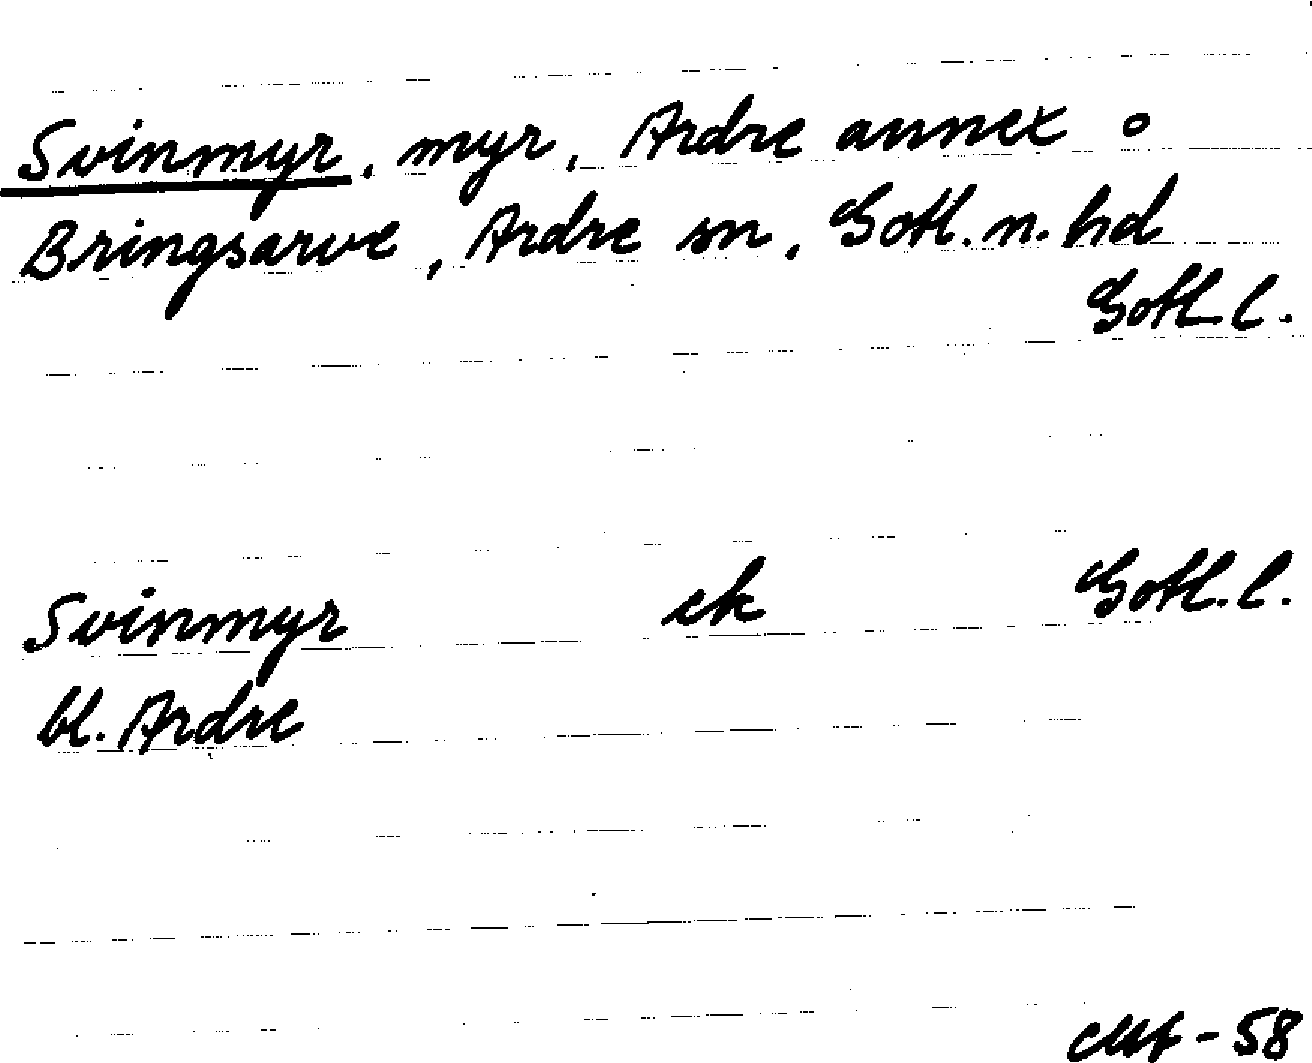 Svinmyr, myr, Ardre annex o
Bringsarve, Ardre sn, Gotl. n. hd
Gotl. l.
Svinmyr ek Gotl. l.
bl. Ardre
- 58